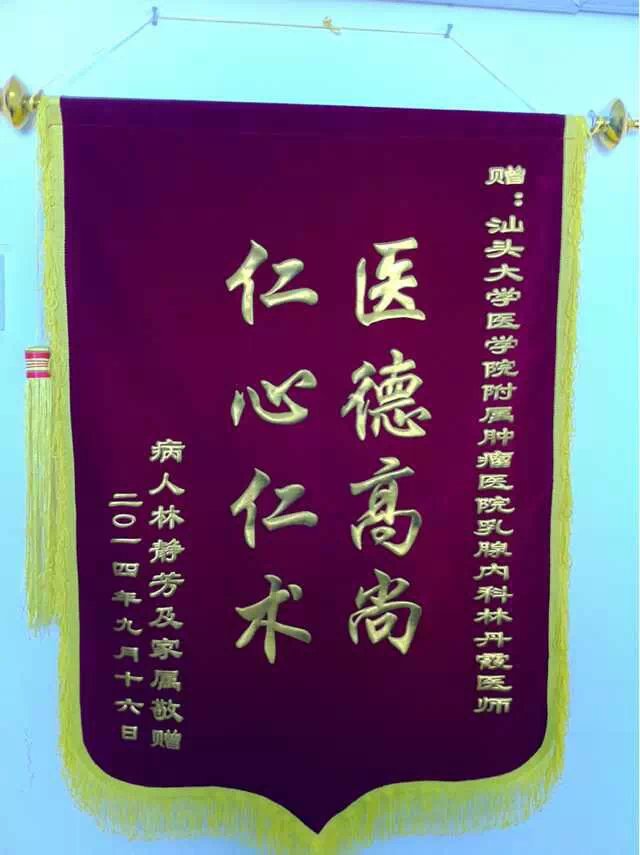 赠：汕头大学医学院附属肿瘤医院乳腺内科林丹霞医师
医德高尚
仁心仁术
病人林静芳及家属敬赠
二〇一四年九月十六日